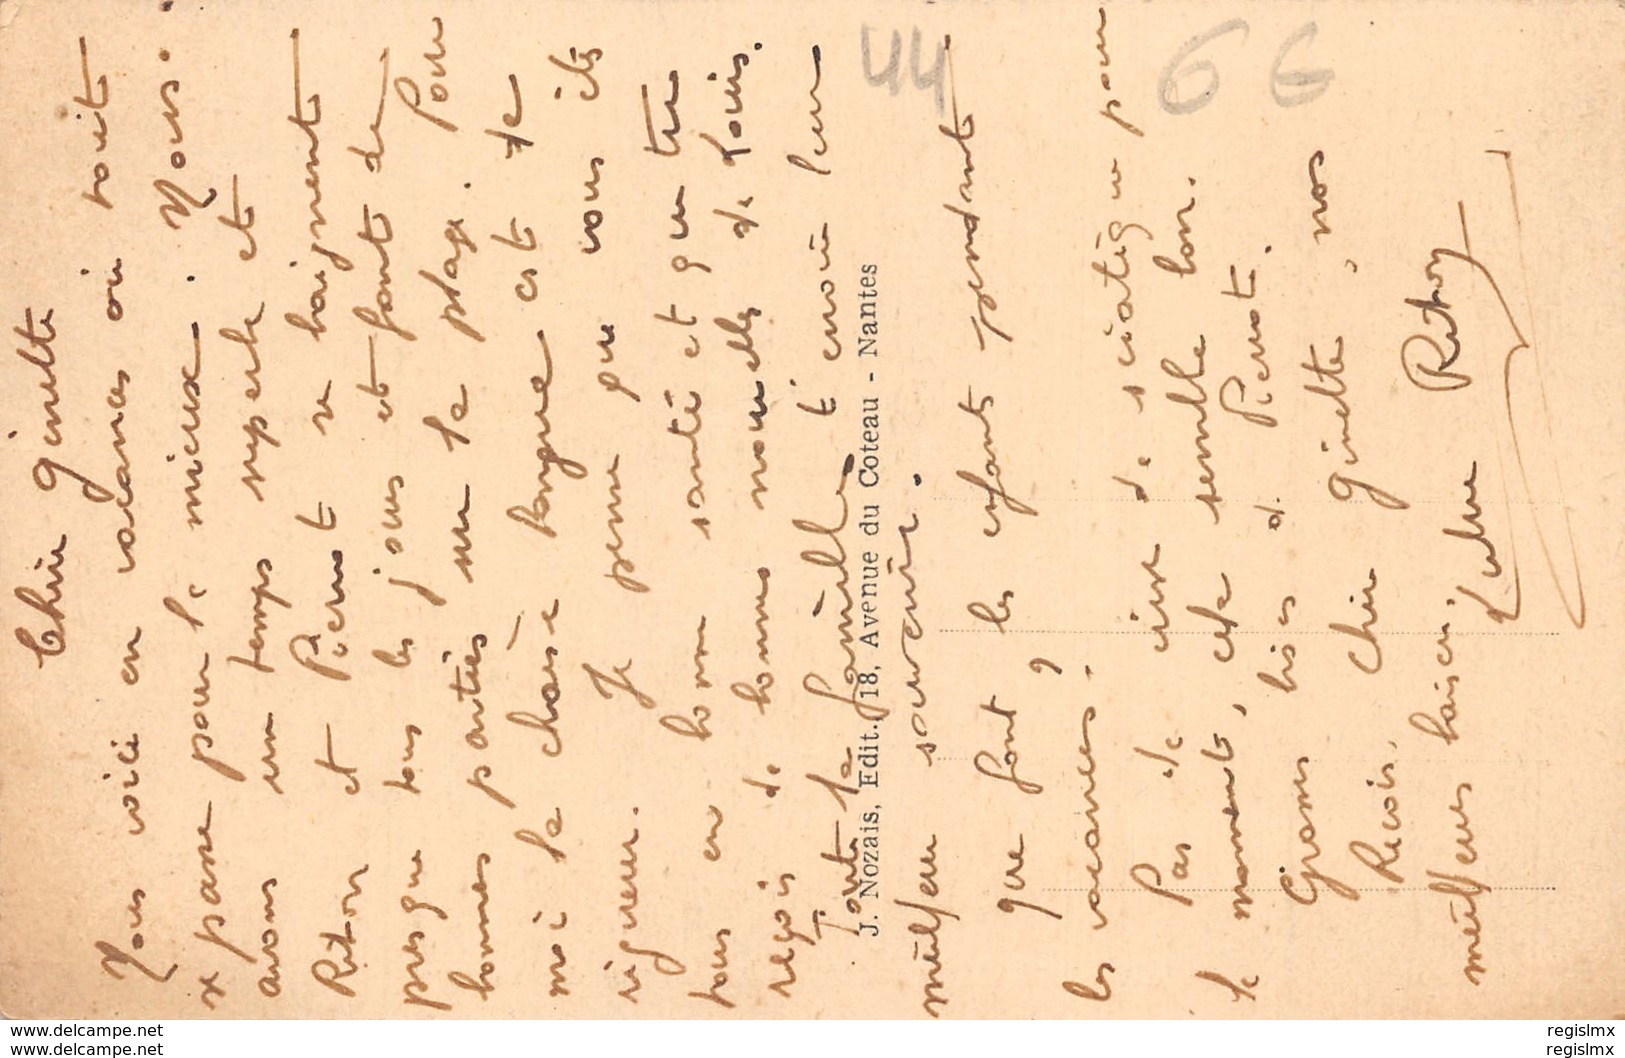 Chère Ginette
Nous voici en vacances où toute
se passe pour le mieux. Nous
avons un temps superbe et
Riton et Pierrot se baignent
presque tous les jours et font de
bonnes parties sur la plage. Pour
moi la chaise longue est de
rigueur. Je pense que vous êtes
tous en bonne santé et que tu
reçois de bonnes nouvelles de Louis.
Toute la famille t'envoie leur
meilleur souvenir.
que font les enfants pendant
les vacances ?
Pas de crise de sciatique pour
le moment, cela semble bon.
Grosses bises de Pierrot.
Reçois, chère Ginette, nos
meilleurs baisers.
Riton
J. Nozais, Edit., 18, Avenue du Coteau - Nantes
44
6 €
www.delcampe.net
www.delcampe.net
regislmx
regislmx